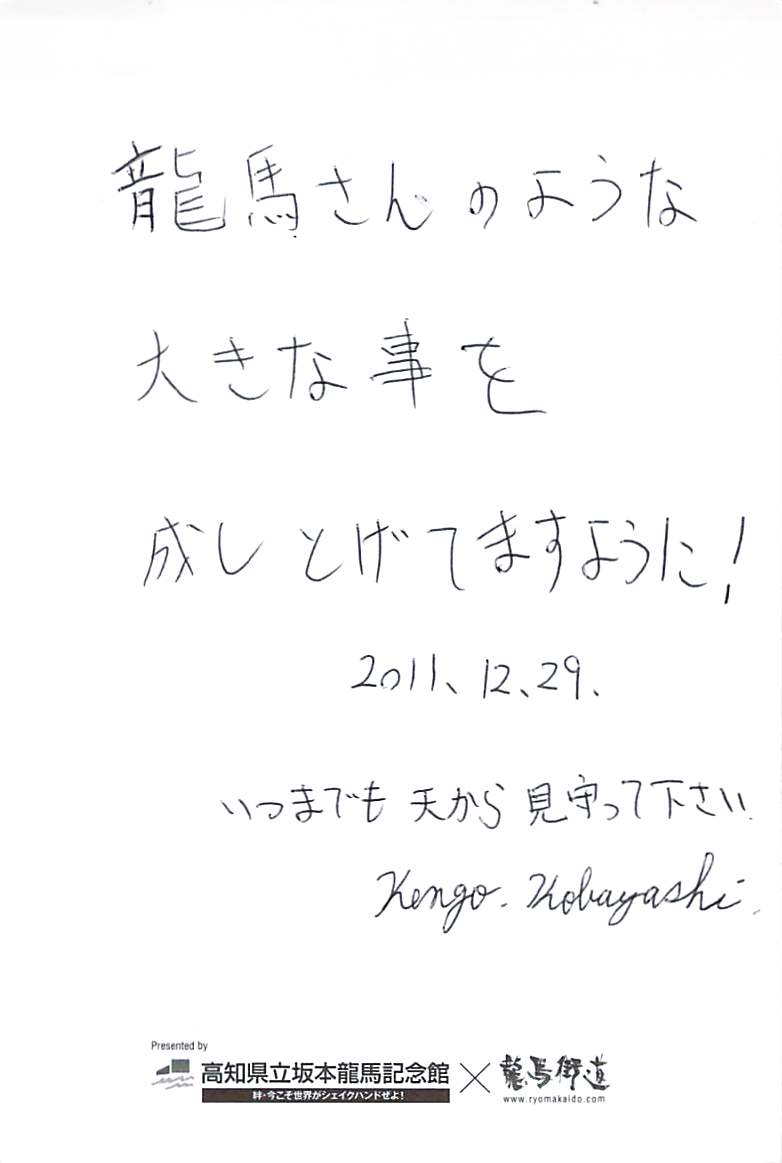 龍馬さんのような
大きな事を
成しとげてますように!
2011、12、29、
いつまでも 天から 見守って下さい
Kengo. Kobayashi
Presented by
高知県立坂本龍馬記念館 × 龍馬街道
絆・今こそ世界がシェイクハンドぜよ!
www.ryomakaido.com